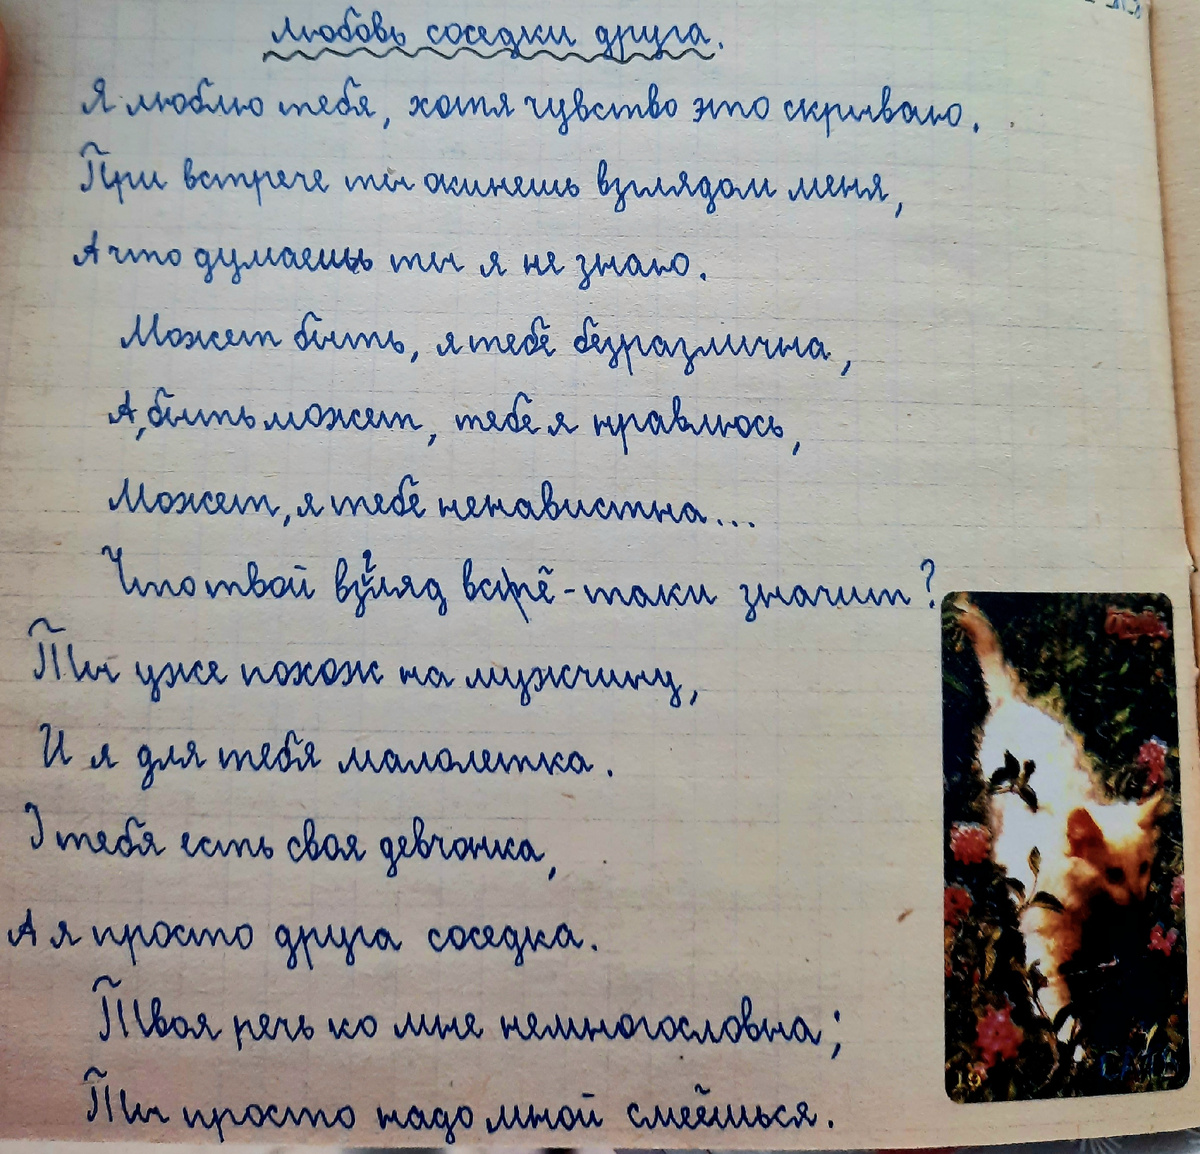 Любовь соседки друга.
Я люблю тебя, хотя чувство это скрываю.
При встрече ты окинешь взглядом меня,
А что думаешь ты я не знаю.
Может быть, я тебе безразлична,
А, быть может, тебе я нравлюсь,
Может, я тебе ненавистна...
Что твой взгляд всё-таки значит?
Ты уже похож на мужчину,
И я для тебя малолетка.
У тебя есть своя девчонка,
А я просто друга соседка.
Твоя речь ко мне немногословна;
Ты просто надо мной смеёшься.